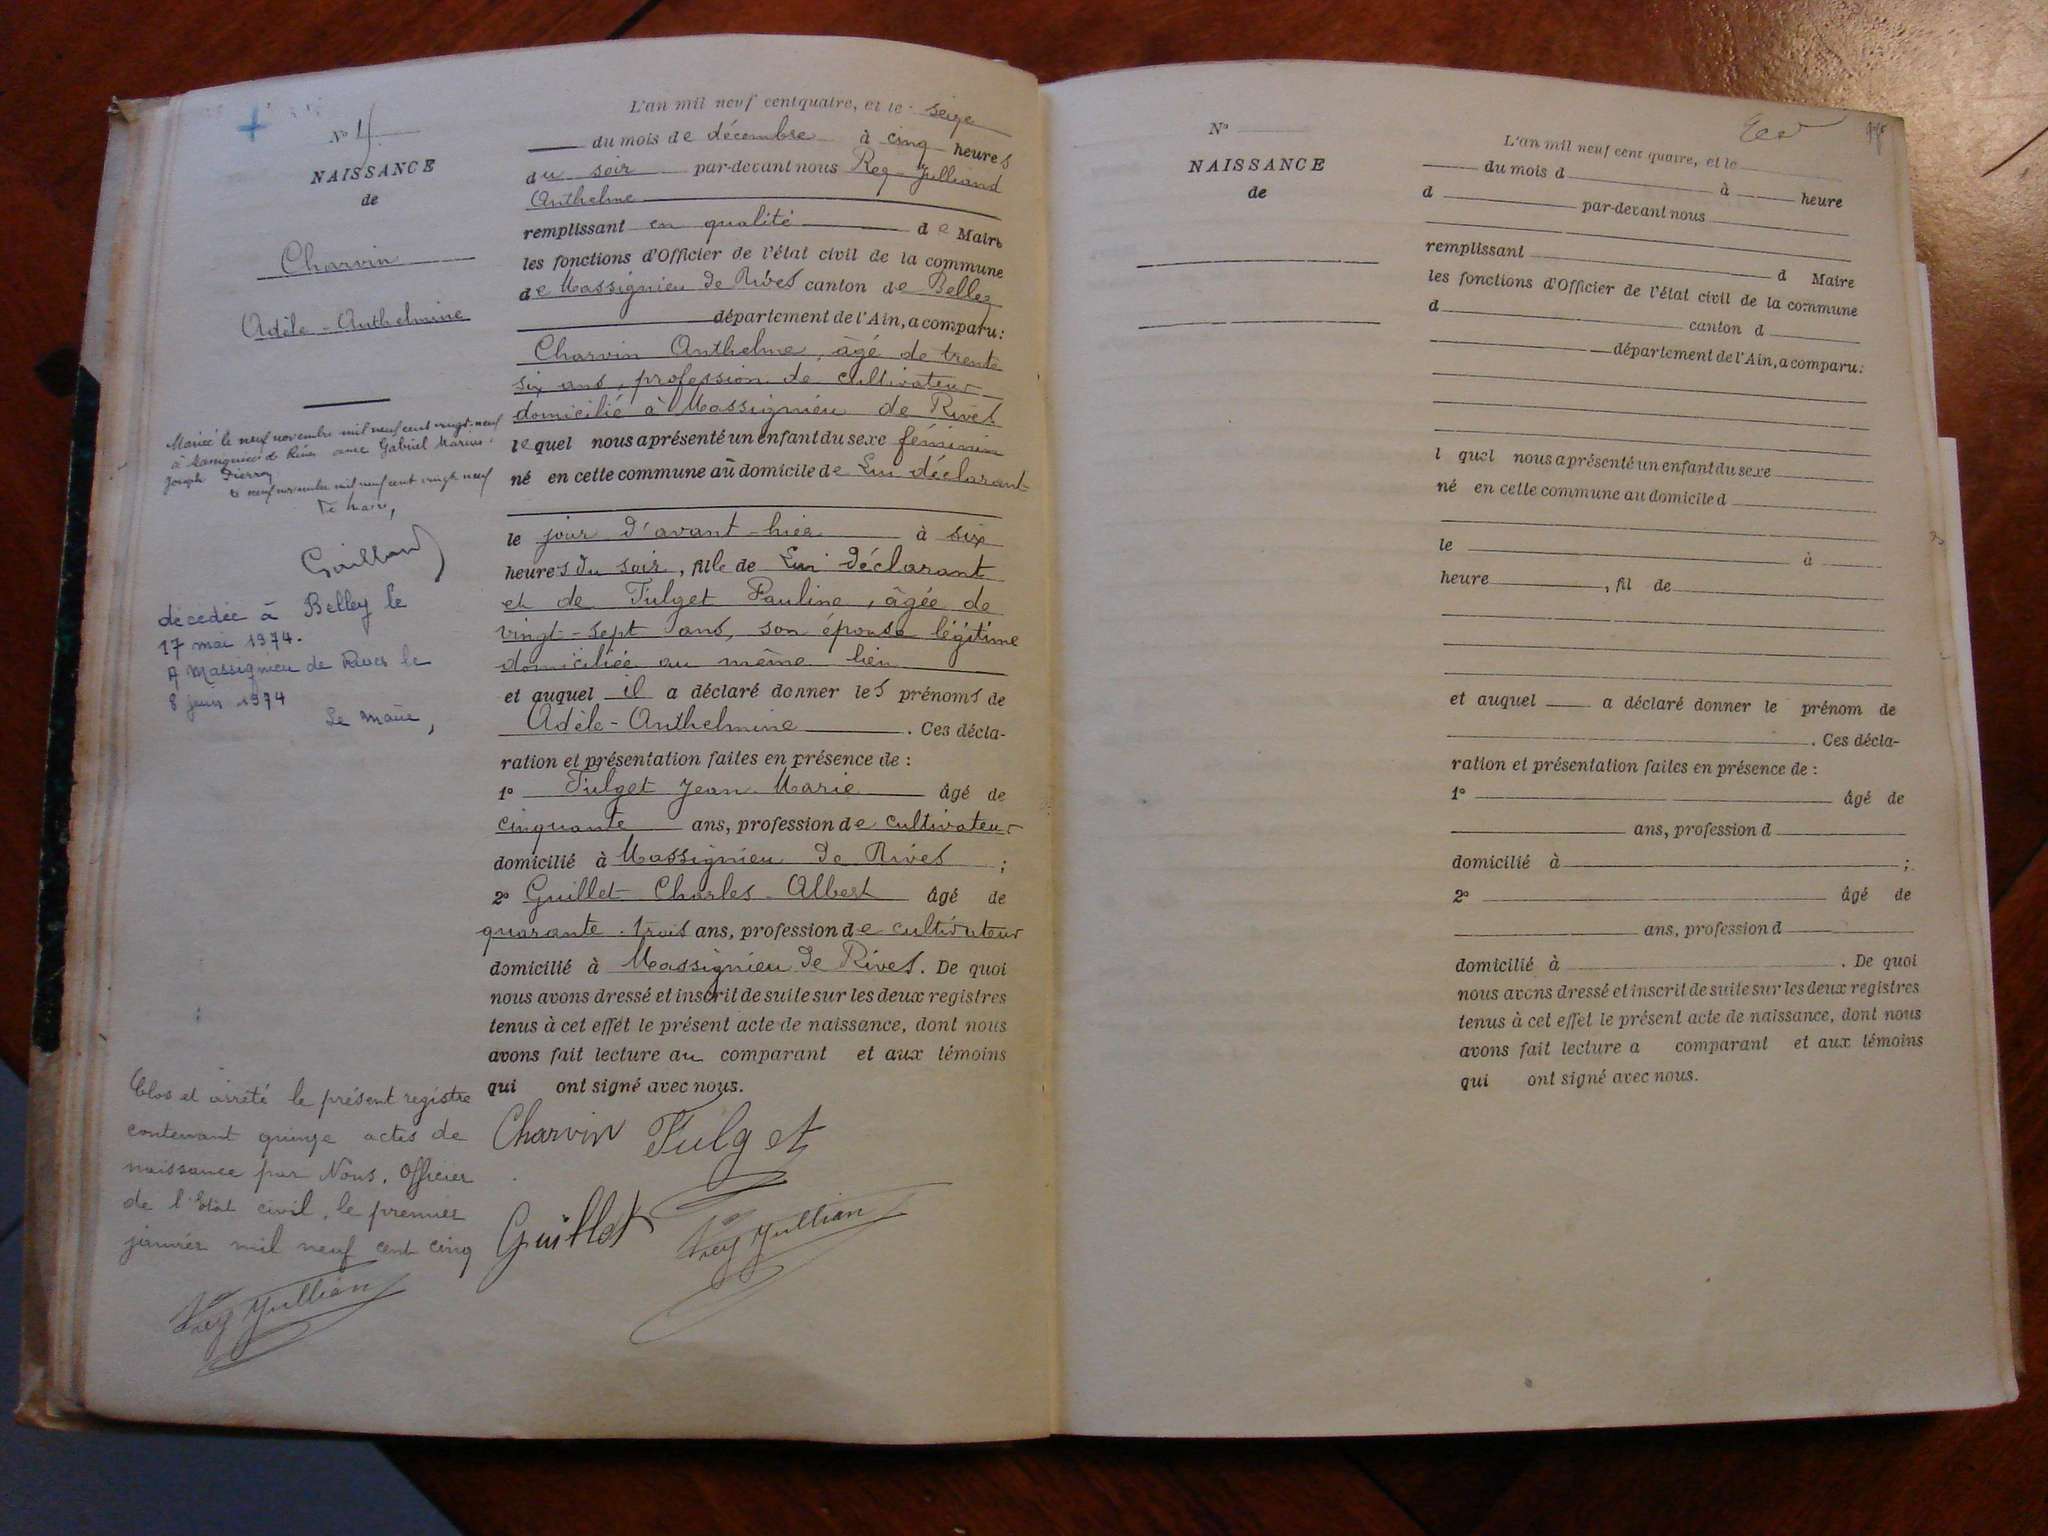 Nº 15
NAISSANCE
de
Charvin
Adèle-Anthelmine
Mariée le neuf novembre mil neuf cent vingt-neuf
à Massignieu de Rives avec Gabriel Marius
Joseph Pierron
le neuf novembre mil neuf cent vingt neuf
Le Maire,
Gaillard
décédée à Belley le
17 mai 1974.
A Massignieu de Rives le
8 juin 1974
Le maire,
Clos et arrêté le présent registre
contenant quinze actes de
naissance par Nous, Officier
de l'Etat civil, le premier
janvier mil neuf cent cinq
Rey Jullian
L'an mil neuf cent quatre, et le seize
du mois de décembre à cinq heures
du soir par-devant nous Rey-Julliand
Anthelme
remplissant en qualité de Maire
les fonctions d'Officier de l'état civil de la commune
de Massignieu de Rives canton de Belley
département de l'Ain, a comparu:
Charvin Anthelme, âgé de trente
six ans, profession de cultivateur
domicilié à Massignieu de Rives
lequel nous a présenté un enfant du sexe féminin
né en cette commune au domicile de Lui déclarant
le jour d'avant-hier à six
heures du soir, fille de Lui déclarant
et de Fulget Pauline, âgée de
vingt-sept ans, son épouse légitime
domiciliée au même lieu
et auquel il a déclaré donner les prénoms de
Adèle-Anthelmine. Ces décla-
ration et présentation faites en présence de :
1º Fulget Jean Marie âgé de
cinquante ans, profession de cultivateur
domicilié à Massignieu de Rives ;
2º Guillet Charles Albert âgé de
quarante-trois ans, profession de cultivateur
domicilié à Massignieu de Rives. De quoi
nous avons dressé et inscrit de suite sur les deux registres
tenus à cet effet le présent acte de naissance, dont nous
avons fait lecture au comparant et aux témoins
qui ont signé avec nous.
Charvin Fulget
Guillet Rey Jullian
Nº
NAISSANCE
de
L'an mil neuf cent quatre, et le
du mois d à heure
d par-devant nous
remplissant d Maire
les fonctions d'Officier de l'état civil de la commune
d canton d
département de l'Ain, a comparu:
l quel nous a présenté un enfant du sexe
né en cette commune au domicile d
le à
heure , fil de
et auquel a déclaré donner le prénom de
. Ces décla-
ration et présentation faites en présence de :
1º âgé de
ans, profession d
domicilié à ;
2º âgé de
ans, profession d
domicilié à . De quoi
nous avons dressé et inscrit de suite sur les deux registres
tenus à cet effet le présent acte de naissance, dont nous
avons fait lecture a comparant et aux témoins
qui ont signé avec nous.